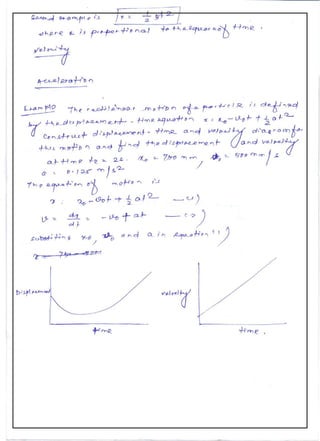 Second example is x = 1/2 at2
where x is proportional to the square of time.
Velocity
Acceleration
Example The rectilinear motion of a particle is defined
by the displacement - time equation x = x0 - v0t + 1/2 at2
Construct displacement - time and velocity diagrams for
this motion and find the displacement and velocity
at time t2 = 2s. x0 = 750 mm v0 = 500 mm/s
a = 0.125 m/s2
The equation of motion is
x = x0 - v0t + 1/2 at2 — (1)
v = dx/dt = -v0 + at — (2)
substituting x0, v0 and a in equation (1)
Displacement
velocity
time
time.